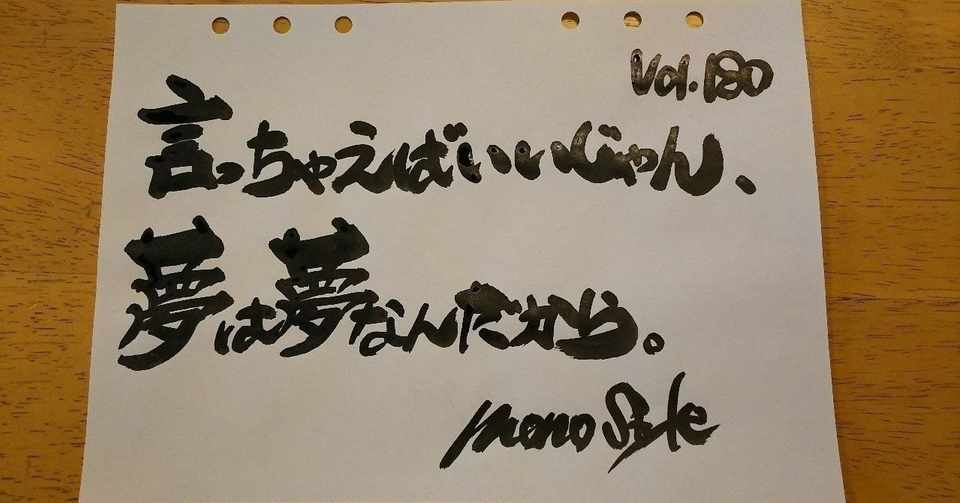 Vol.180
言っちゃえばいいじゃん、
夢は夢なんだから。
mono Style